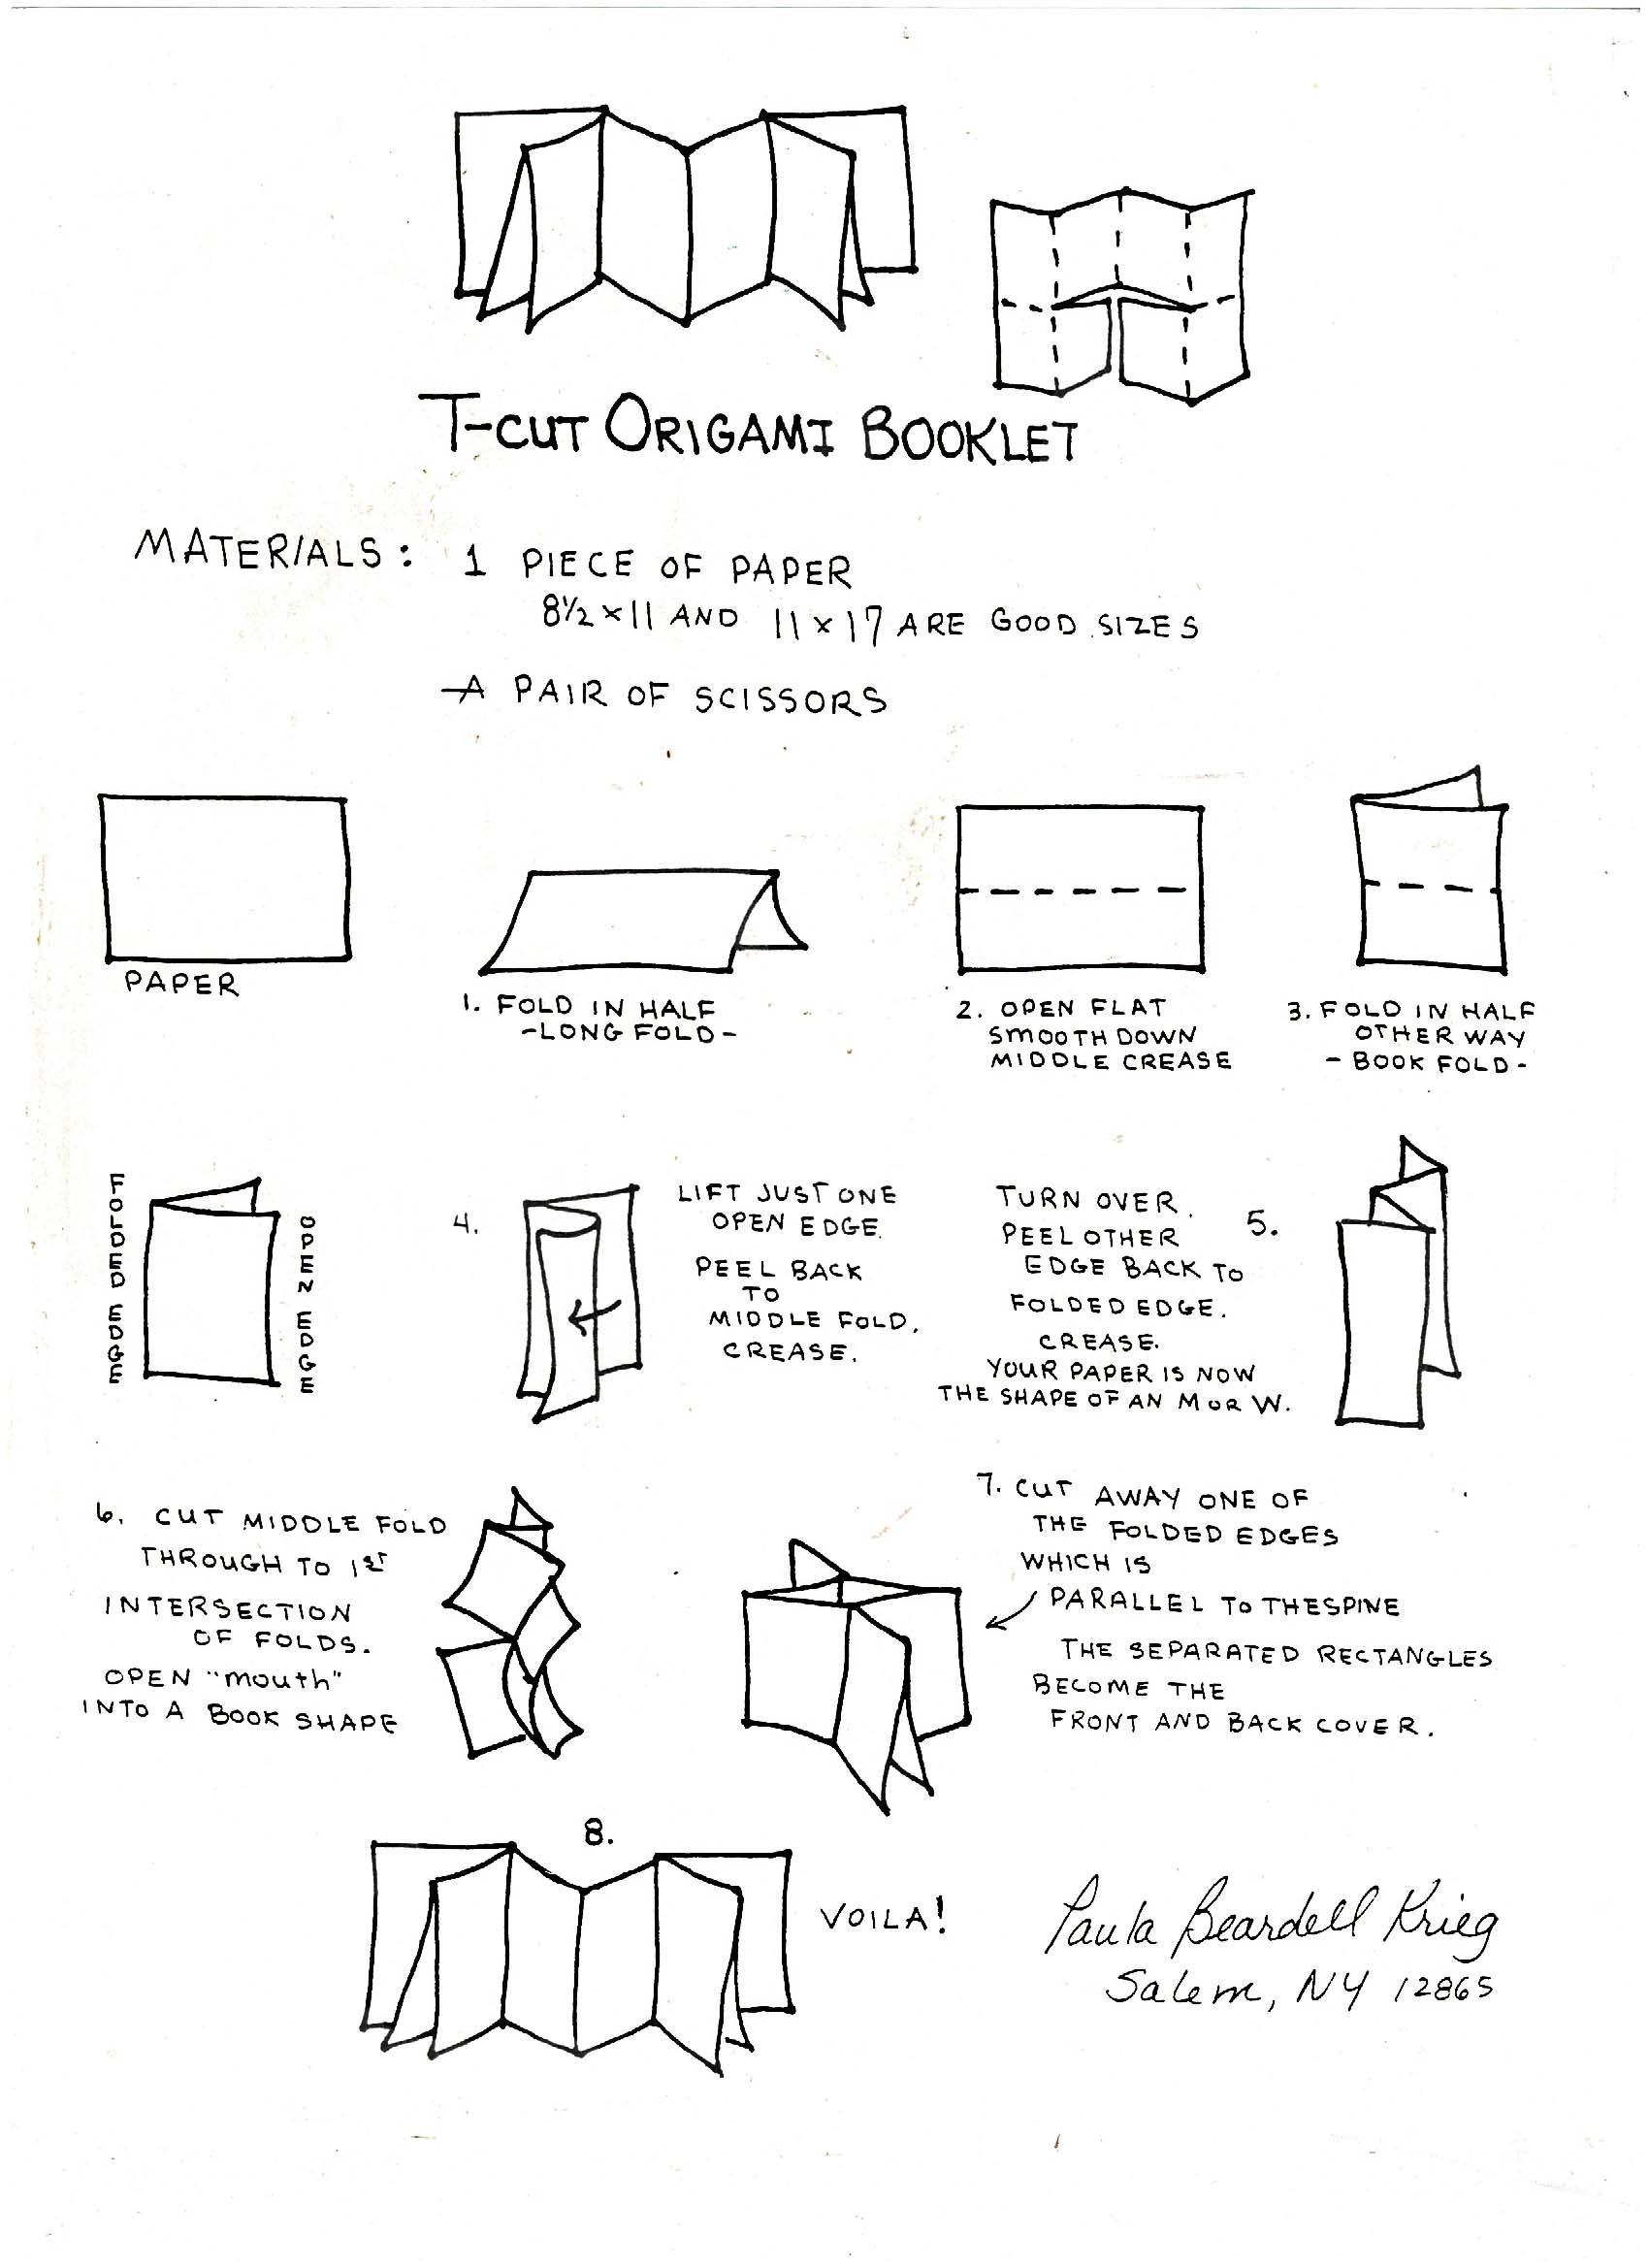 T-CUT ORIGAMI BOOKLET
MATERIALS: 1 PIECE OF PAPER
8½ x 11 AND 11 x 17 ARE GOOD SIZES
-A PAIR OF SCISSORS
PAPER
1. FOLD IN HALF
-LONG FOLD-
2. OPEN FLAT
SMOOTH DOWN
MIDDLE CREASE
3. FOLD IN HALF
OTHER WAY
- BOOK FOLD -
FOLDED EDGE
OPEN EDGE
4.
LIFT JUST ONE
OPEN EDGE.
PEEL BACK
TO
MIDDLE FOLD.
CREASE.
5.
TURN OVER.
PEEL OTHER
EDGE BACK TO
FOLDED EDGE.
CREASE.
YOUR PAPER IS NOW
THE SHAPE OF AN M OR W.
6. CUT MIDDLE FOLD
THROUGH TO 1ST
INTERSECTION
OF FOLDS.
OPEN "mouth"
INTO A BOOK SHAPE
7. CUT AWAY ONE OF
THE FOLDED EDGES
WHICH IS
PARALLEL TO THE SPINE
THE SEPARATED RECTANGLES
BECOME THE
FRONT AND BACK COVER.
8.
VOILA!
Paula Beardell Krieg
Salem, NY 12865